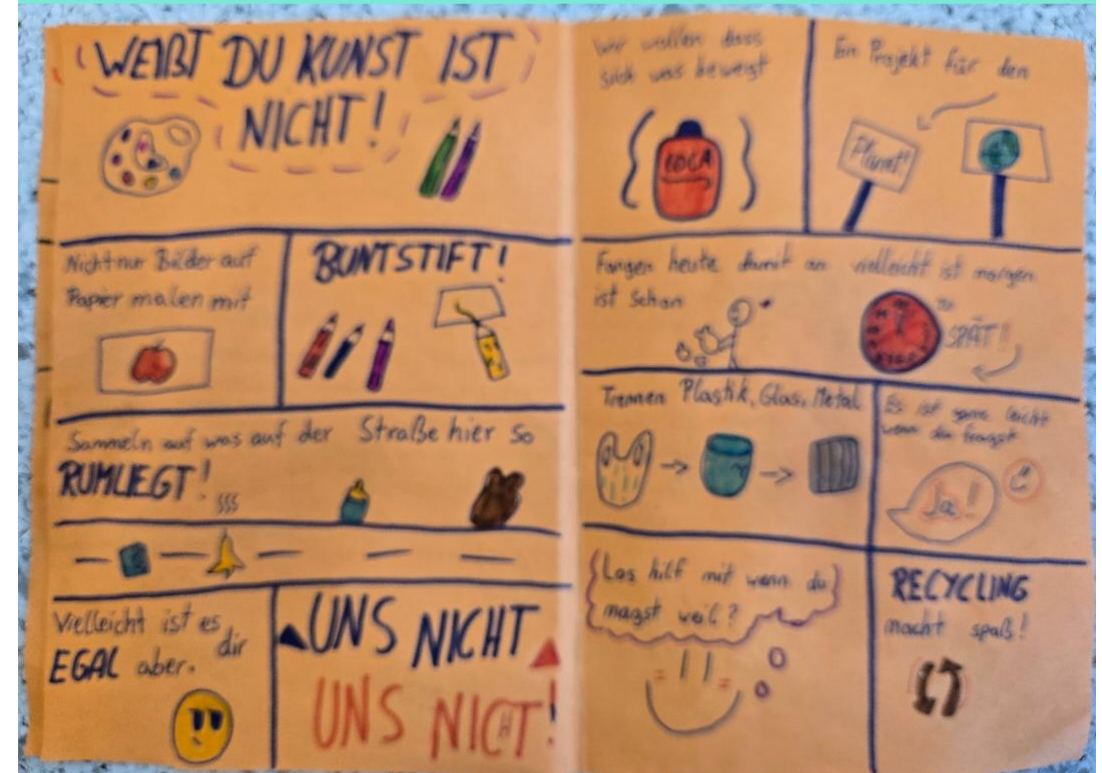 WEIßT DU KUNST IST
NICHT!
Nicht nur Bilder auf
Papier malen mit
BUNTSTIFT!
Sammeln auf was auf der Straße hier so
RUMLIEGT!
Vielleicht ist es
dir
EGAL aber.
UNS NICHT
UNS NICHT!
Wir wollen dass
sich was bewegt
COLA
Ein Projekt für den
Planet!
Fangen heute damit an vielleicht ist morgen
ist schon
zu
SPÄT!
Trennen Plastik, Glas, Metal
Es ist ganz leicht
wenn du fragst
Ja!
Los hilf mit wenn du
magst weil?
RECYCLING
macht spaß!